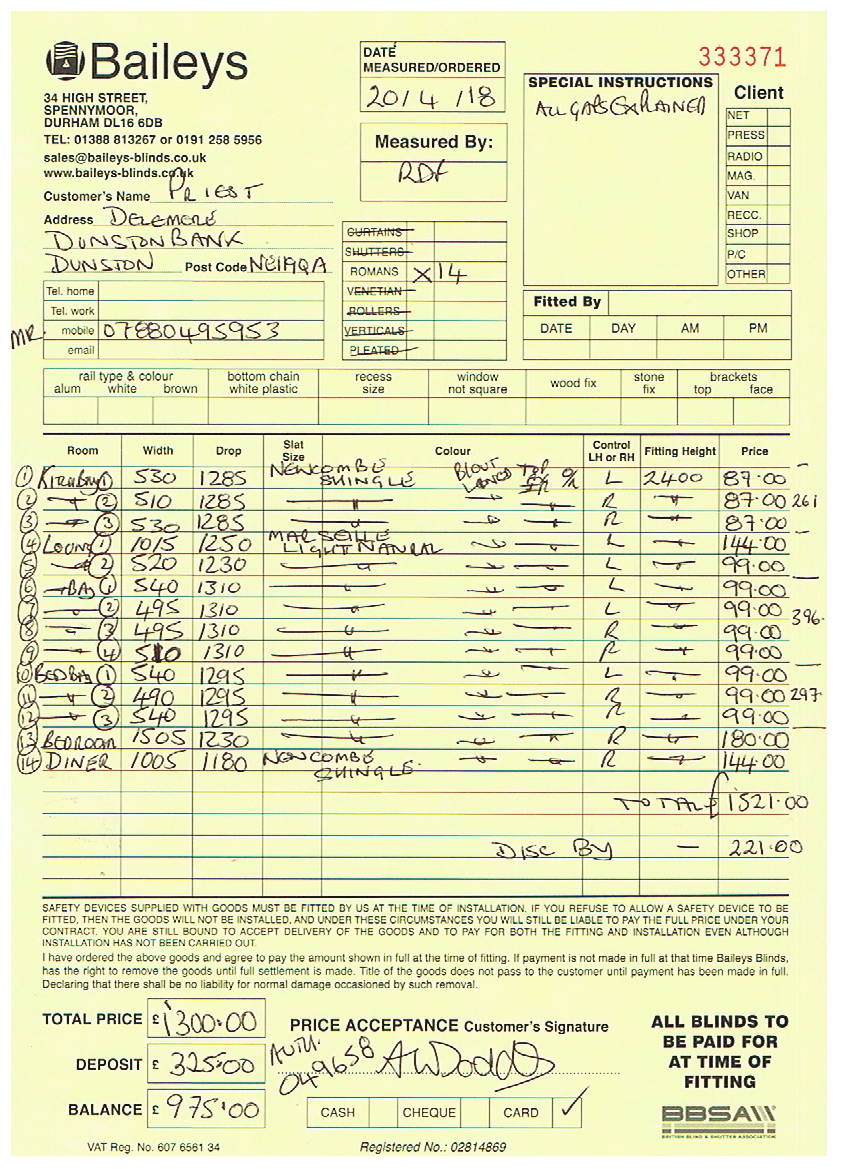 Baileys
34 HIGH STREET,
SPENNYMOOR,
DURHAM DL16 6DB
TEL: 01388 813267 or 0191 258 5956
sales@baileys-blinds.co.uk
www.baileys-blinds.co.uk
DATE MEASURED/ORDERED
20/4/18
Measured By:
RDF
333371
SPECIAL INSTRUCTIONS
ALL GAPS EXPLAINED
Client
NET
PRESS
RADIO
MAG.
VAN
RECC.
SHOP
P/C
OTHER
Customer's Name PRIEST
Address DELEMERE
DUNSTON BANK
DUNSTON Post Code NE119QA
Tel. home
Tel. work
MR. mobile 07880495953
email
CURTAINS
SHUTTERS
ROMANS X14
VENETIAN
ROLLERS
VERTICALS
PLEATED
Fitted By
DATE DAY AM PM
rail type & colour
alum white brown
bottom chain
white plastic
recess
size
window
not square
wood fix
stone
fix
brackets
top face
Room Width Drop Slat Size Colour Control LH or RH Fitting Height Price
1 530 1285 NEWCOMBE SHINGLE L 2400 87.00
2 2 510 1285 " R " 87.00 261
3 3 530 1285 " R 87.00
4 LOUNG 1 1015 1250 MARSEILLE LIGHT NATURAL L 144.00
5 2 520 1230 " L 99.00
6 BAY 1 540 1310 L 99.00
7 2 495 1310 L 99.00 396.
8 3 495 1310 R 99.00
9 4 510 1310 R 99.00
10 BED BAY 1 540 1295 L 99.00
11 2 490 1295 R 99.00 297
12 3 540 1295 R 99.00
13 BEDROOM 1505 1230 R 180.00
14 DINER 1005 1180 NEWCOMBE SHINGLE R 144.00
TOTAL £1521.00
DISC BY — 221.00
SAFETY DEVICES SUPPLIED WITH GOODS MUST BE FITTED BY US AT THE TIME OF INSTALLATION. IF YOU REFUSE TO ALLOW A SAFETY DEVICE TO BE
FITTED, THEN THE GOODS WILL NOT BE INSTALLED, AND UNDER THESE CIRCUMSTANCES YOU WILL STILL BE LIABLE TO PAY THE FULL PRICE UNDER YOUR
CONTRACT. YOU ARE STILL BOUND TO ACCEPT DELIVERY OF THE GOODS AND TO PAY FOR BOTH THE FITTING AND INSTALLATION EVEN ALTHOUGH
INSTALLATION HAS NOT BEEN CARRIED OUT.
I have ordered the above goods and agree to pay the amount shown in full at the time of fitting. If payment is not made in full at that time Baileys Blinds,
has the right to remove the goods until full settlement is made. Title of the goods does not pass to the customer until payment has been made in full.
Declaring that there shall be no liability for normal damage occasioned by such removal.
TOTAL PRICE £ 1300.00
DEPOSIT £ 325.00
BALANCE £ 975.00
PRICE ACCEPTANCE Customer's Signature
AUTH. 049658
CASH CHEQUE CARD ✓
ALL BLINDS TO
BE PAID FOR
AT TIME OF
FITTING
BBSA
BRITISH BLIND & SHUTTER ASSOCIATION
VAT Reg. No. 607 6561 34
Registered No.: 02814869